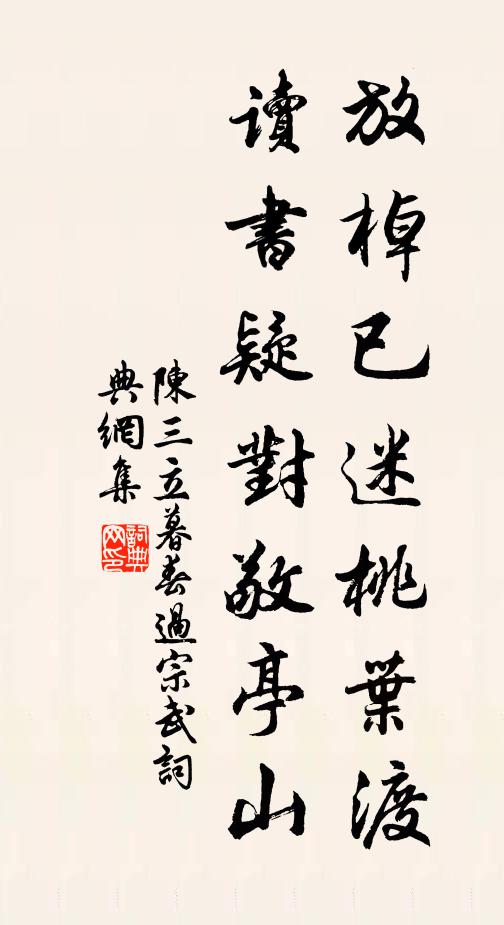 放棹已迷桃葉渡
讀書疑對敬亭山
陳三立暮春過宗武詞
典網集
詞典
网印